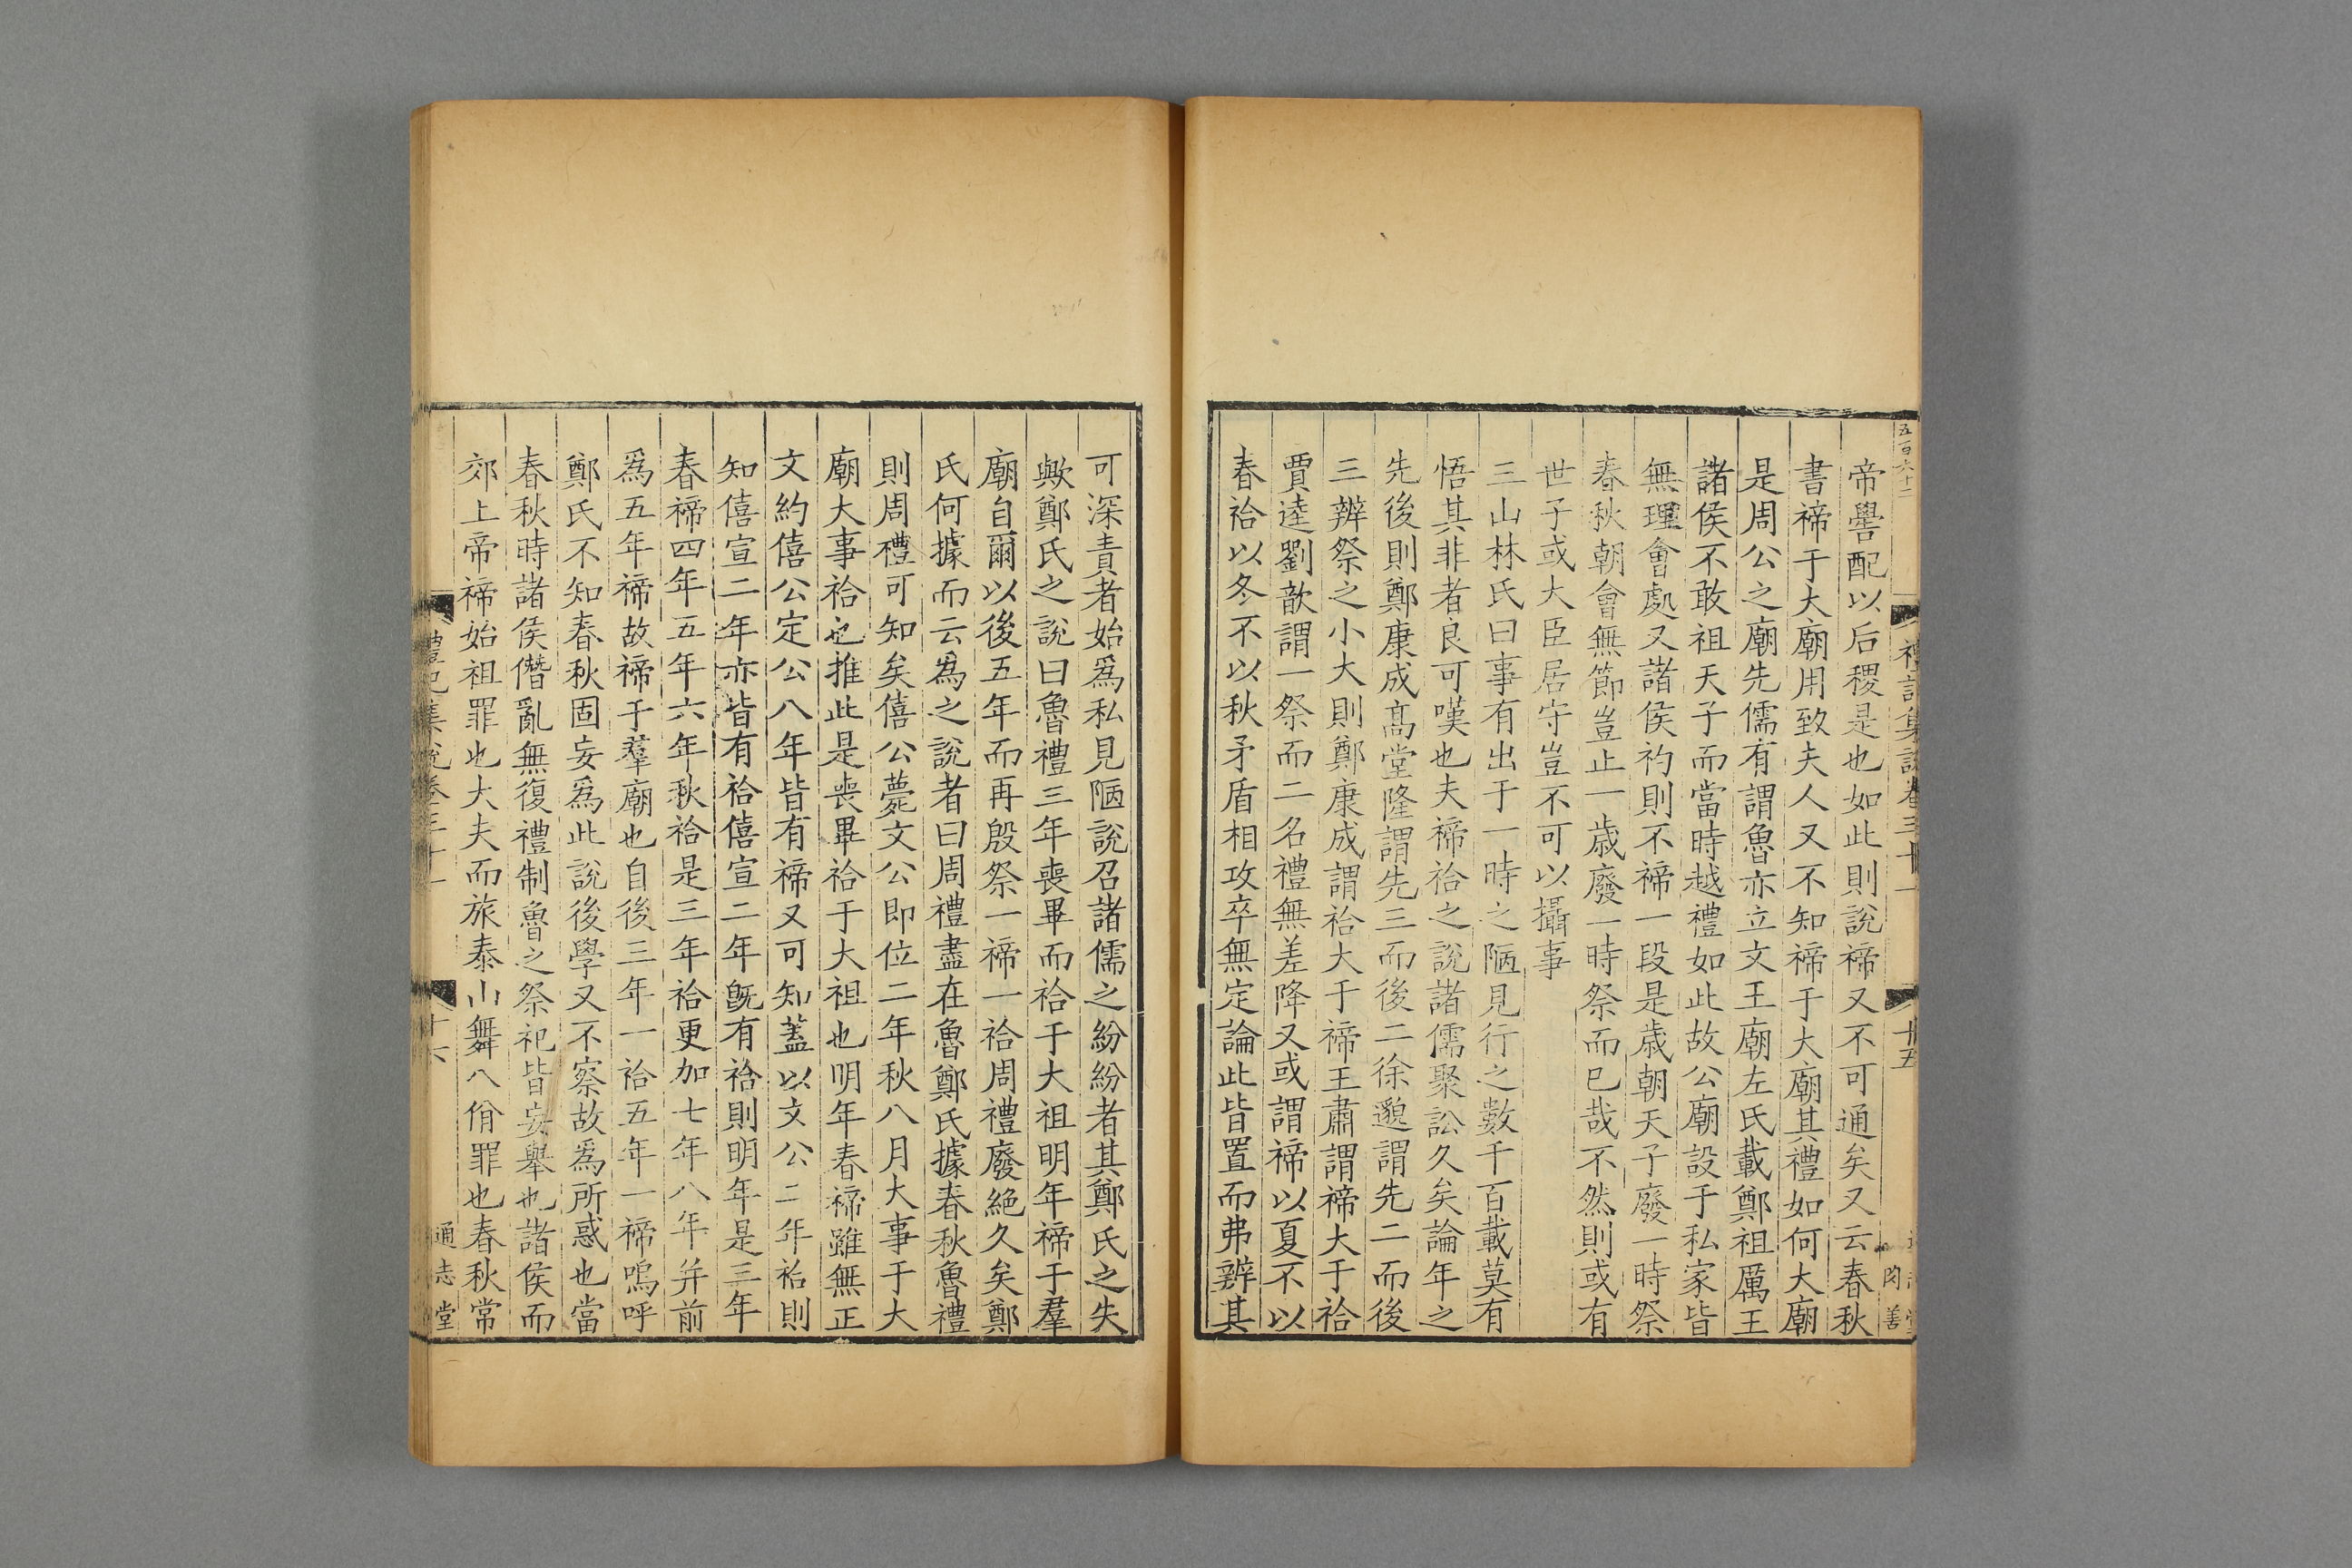 五百六十二
禮記集說卷三十一
十五
帝嚳配以后稷是也如此則說禘又不可通矣又云春秋
書禘于大廟用致夫人又不知禘于大廟其禮如何大廟
是周公之廟先儒有謂魯亦立文王廟左氏載鄭祖厲王
諸侯不敢祖天子而當時越禮如此故公廟設于私家皆
無理會處又諸侯礿則不禘一段是歳朝天子廢一時祭
春秋朝會無節豈止一歳廢一時祭而已哉不然則或有
世子或大臣居守豈不可以攝事
三山林氏曰事有出于一時之陋見行之數千百載莫有
悟其非者良可嘆也夫禘祫之說諸儒聚訟久矣論年之
先後則鄭康成高堂隆謂先三而後二徐邈謂先二而後
三辨祭之小大則鄭康成謂祫大于禘王肅謂禘大于祫
賈逵劉歆謂一祭而二名禮無差降又或謂禘以夏不以
春祫以冬不以秋矛盾相攻卒無定論此皆置而弗辨其
可深責者始爲私見陋說召諸儒之紛紛者其鄭氏之失
歟鄭氏之說曰魯禮三年喪畢而祫于大祖明年禘于羣
廟自爾以後五年而再殷祭一禘一祫周禮廢絶久矣鄭
氏何據而云爲之說者曰周禮盡在魯鄭氏據春秋魯禮
則周禮可知矣僖公薨文公即位二年秋八月大事于大
廟大事祫也推此是喪畢祫于大祖也明年春禘雖無正
文約僖公定公八年皆有禘又可知蓋以文公二年祫則
知僖宣二年亦皆有祫僖宣二年旣有祫則明年是三年
春禘四年五年六年秋祫是三年祫更加七年八年并前
爲五年禘故禘于羣廟也自後三年一祫五年一禘嗚呼
鄭氏不知春秋固妄爲此說後學又不察故爲所惑也當
春秋時諸侯僭亂無復禮制魯之祭祀皆妄舉也諸侯而
郊上帝禘始祖罪也大夫而旅泰山舞八佾罪也春秋常
禮記集說卷三十一
十六
通志堂